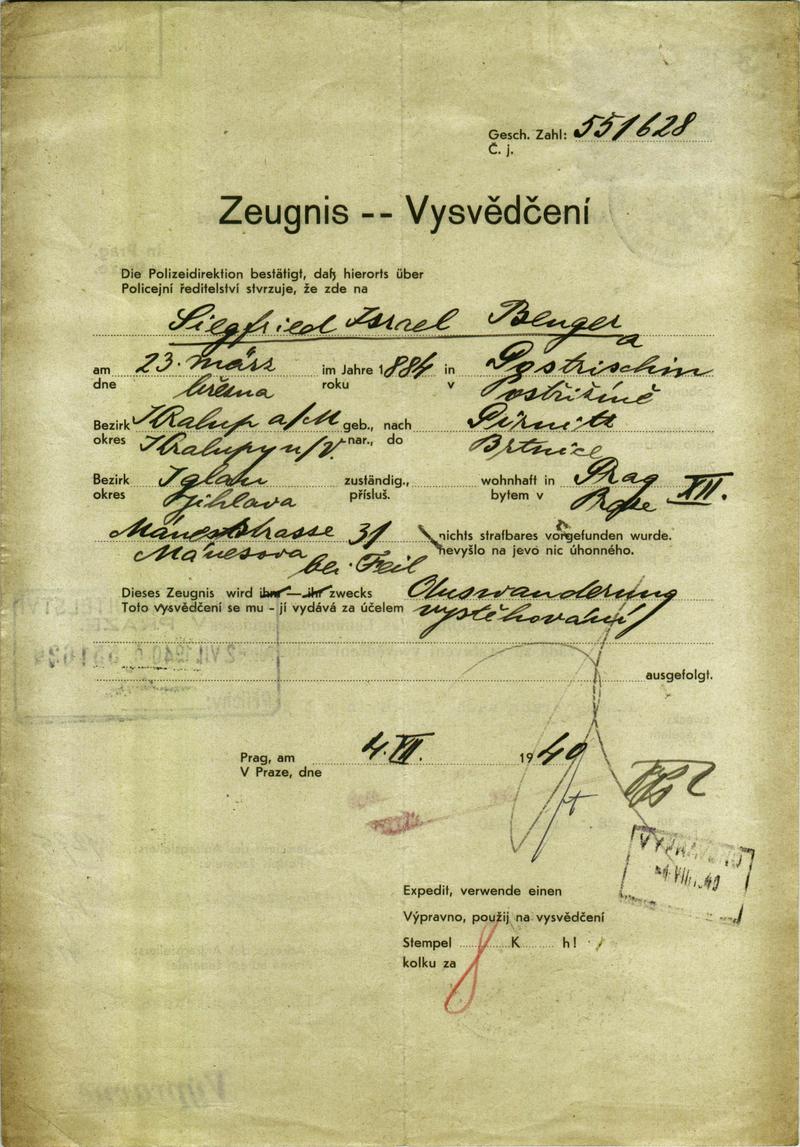 Gesch. Zahl: 551628
Č. j.
Zeugnis -- Vysvědčení
Die Polizeidirektion bestätigt, daß hierorts über
Policejní ředitelství stvrzuje, že zde na
Siegfried Israel Benger a
am 23. März im Jahre 1884 in Postrischin
dne března roku v Postřižíně
Bezirk Kralup a/M geb., nach Pirnitz
okres Kralupy n/V. nar., do Brtnice
Bezirk Iglau zuständig., wohnhaft in Prag XII.
okres Jihlava přísluš. bytem v Praze
Mánesstrasse 31 nichts strafbares vorgefunden wurde.
Mánesova bei Feil nevyšlo na jevo nic úhonného.
Dieses Zeugnis wird ihm — ihr zwecks Auswanderung
Toto vysvědčení se mu - jí vydává za účelem vystěhování
ausgefolgt.
Prag, am 4. VII. 1940
V Praze, dne
VYPRAVENO
-4. VII. 40
Expedit, verwende einen
Výpravno, použij na vysvědčení
Stempel 8 K h!
kolku za